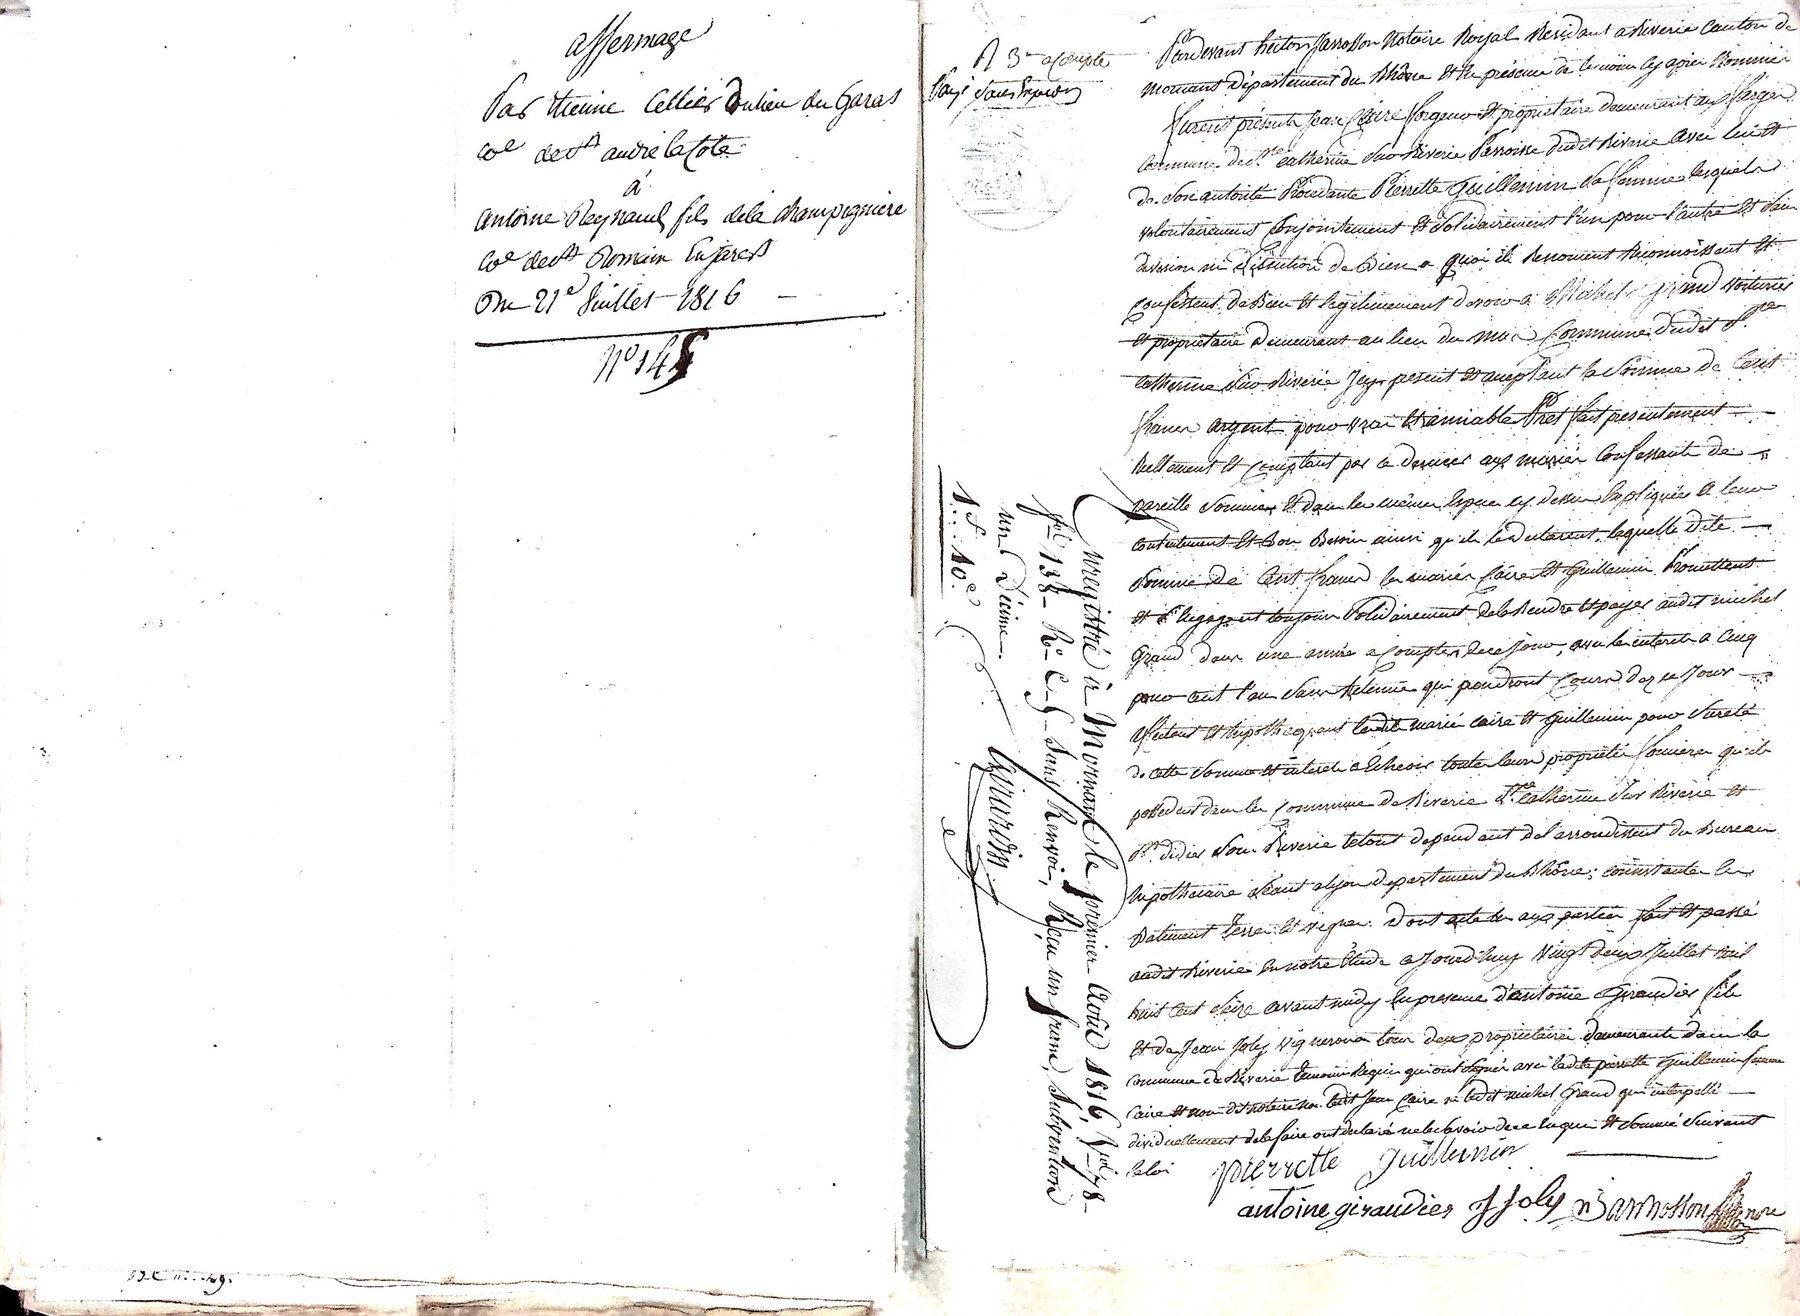 affermage
Par Etienne Cellier Du lieu du Garas
coe. de st andré la Cote
à
antoine Reynaud fils dela champigniere
coe de st Romain En Jarest
Du 21e Juillet 1816
No 145
Pardevant hector Jarrosson Notaire Royal Residant a Riverie canton de
mornant département du Rhône Et En présence de temoins cy apres Nommés
furent présents Jean Claire forgeur et proprietaire demeurant aux farges
Commune de ste catherine sur Riverie Parroisse dudit Riverie avec lui et
de Son autorité Procedante Pierrette Guillermin Sa femme lesquels
volontairement Conjointement et Solidairement l'un pour l'autre et Sans
division ni discution de Bien a quoi ils Renoncent Reconnoissent et
Confessent de Bien et légitimement devoir a Michel Grand voiturier
et proprietaire demeurant au lieu du Commune dudit Ste
catherine sur Riverie Icy present et aceptant la Somme de Cent
francs argent pour vrai et amiable Prêt fait presentement
Réellement et Comptant par ce dernier aux mariés Confessants de
pareille Somme et dans les mêmes Especes cy dessus Expliquées a leur
Contentement et Bon Besoin ainsi qu'ils le declarent, laquelle dite
Somme de Cent francs les mariés Claire et Guillermin Promettent
et S'engagent toujours Solidairement de la Rendre et payer audit michel
Grand dans une année a Compter de ce Jour, avec les interets a Cinq
pour cent l'an Sans Retenue qui prendront Cours dez ce Jour
affectent et hipothequent lesdits mariés claire et Guillermin pour Sureté
de cette Somme et interets a Echeoir toutes leurs proprietés foncieres qu'ils
possedent dans les Communes de Riverie Ste Catherine Sur Riverie et
St didier Sous Riverie le tout dependant de l'arrondissement du Bureau
hipothecaire séant a lyon departement du Rhône; consistantes En
Batiment terres et vignes. Dont acte lu aux parties fait et passé
audit Riverie En notre Etude a Jourd'huy vingt deux Juillet mil
huit cent Seize avant midy En presence d'antoine Giraudier fils
et de Jean Joly vignerons tous deux proprietaires demeurants dans la
commune de Riverie temoins Requis qui ont Signé avec ladite pierrette Guillermin femme
Claire et nous dit notaire non ledit Jean Claire ni ledit michel Grand qui interpellé
dividuellement de le faire ont declaré ne le Savoir de ce Enquis et Sommé Suivant
la loi
pierrette guillermin
antoine giraudier J Joly Jarrosson Nore
Enregistré à Mornant le premier Août 1816, Vol 78
fol 138 Ro C 5 Sans Renvoi, Reçu un franc, Subvention
un Décime.
1f..10c.
Girardin